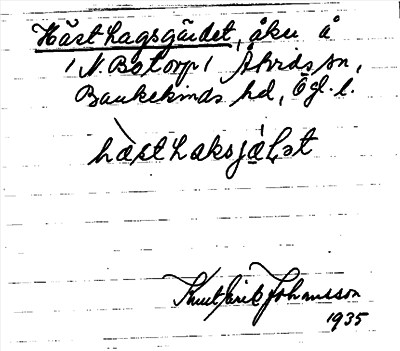 Hästhagsgärdet, åker å
/N. Botorp/ Åtvids sn,
Bankekinds hd, Ögl. l.
hæsthaksjæLət
Knut Erik Johansson
1935